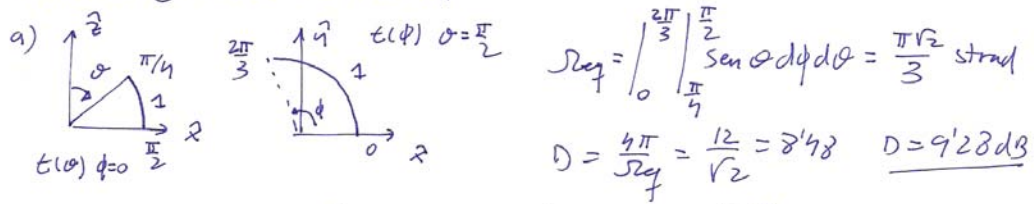 a) ẑ θ π/4 1 x̂ π/2
t(θ) φ=0
2π/3 ŷ t(φ) θ=π/2 1 φ 0 x̂
Ωeq = ∫₀^{2π/3} ∫_{π/4}^{π/2} sen θ dφ dθ = π√2/3 strad
D = 4π/Ωeq = 12/√2 = 8'48 D = 9'28 dB